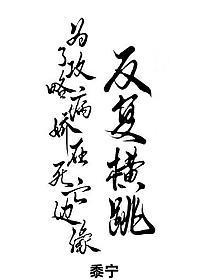 为了攻略病娇在死亡边缘
反复横跳
黍宁